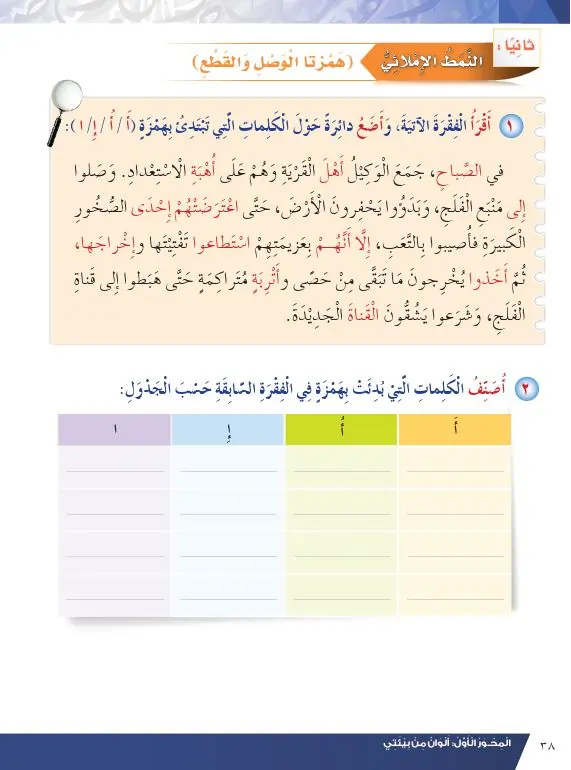 ثانِيًا :
النَّمَطُ الإِمْلائِيُّ (هَمْزتا الْوَصْلِ وَالقَطْعِ)
١ أَقْرَأُ الْفِقْرَةَ الآتيَةَ، وَأَضَعُ دائِرَةً حَوْلَ الْكَلِماتِ الَّتِي تَبْتَدِئُ بِهَمْزَةٍ (أَ/أُ/إِ/ا):
في الصَّباحِ، جَمَعَ الْوَكِيْلُ أَهْلَ الْقَرْيَةِ وَهُمْ عَلَى أُهْبَةِ الْاسْتِعْدادِ. وَصَلوا
إِلى مَنْبَعِ الْفَلَجِ، وَبَدَؤُوا يَحْفِرونَ الْأَرْضَ، حَتَّى اعْتَرَضَتْهُمْ إِحْدَى الصُّخُورِ
الْكَبيرَةِ فأُصيبوا بِالتَّعَبِ، إِلَّا أَنَّهُـــمْ بِعَزيمَتِهِمْ اسْتَطاعوا تَفْتِيْتَها وإِخْراجَها،
ثُمَّ أَخَذوا يُخْرِجونَ مَا تَبَقَّى مِنْ حَصًى وأَتْرِبَةٍ مُتَراكِمَةٍ حَتَّى هَبَطوا إِلى قَناةِ
الْفَلَجِ، وَشَرَعوا يَشُقُّونَ الْقَناةَ الْجَديْدَةَ.
٢ أُصَنِّفُ الْكَلِماتِ الَّتِيْ بُدِئَتْ بِهَمْزَةٍ فِي الْفِقْرَةِ السّابِقَةِ حَسْبَ الْجَدْوَلِ:
أَ أُ إِ ا
٣٨ الْمِحْوَرُ الْأَوَّلُ: أَلْوانٌ مِنْ بيئَتِي